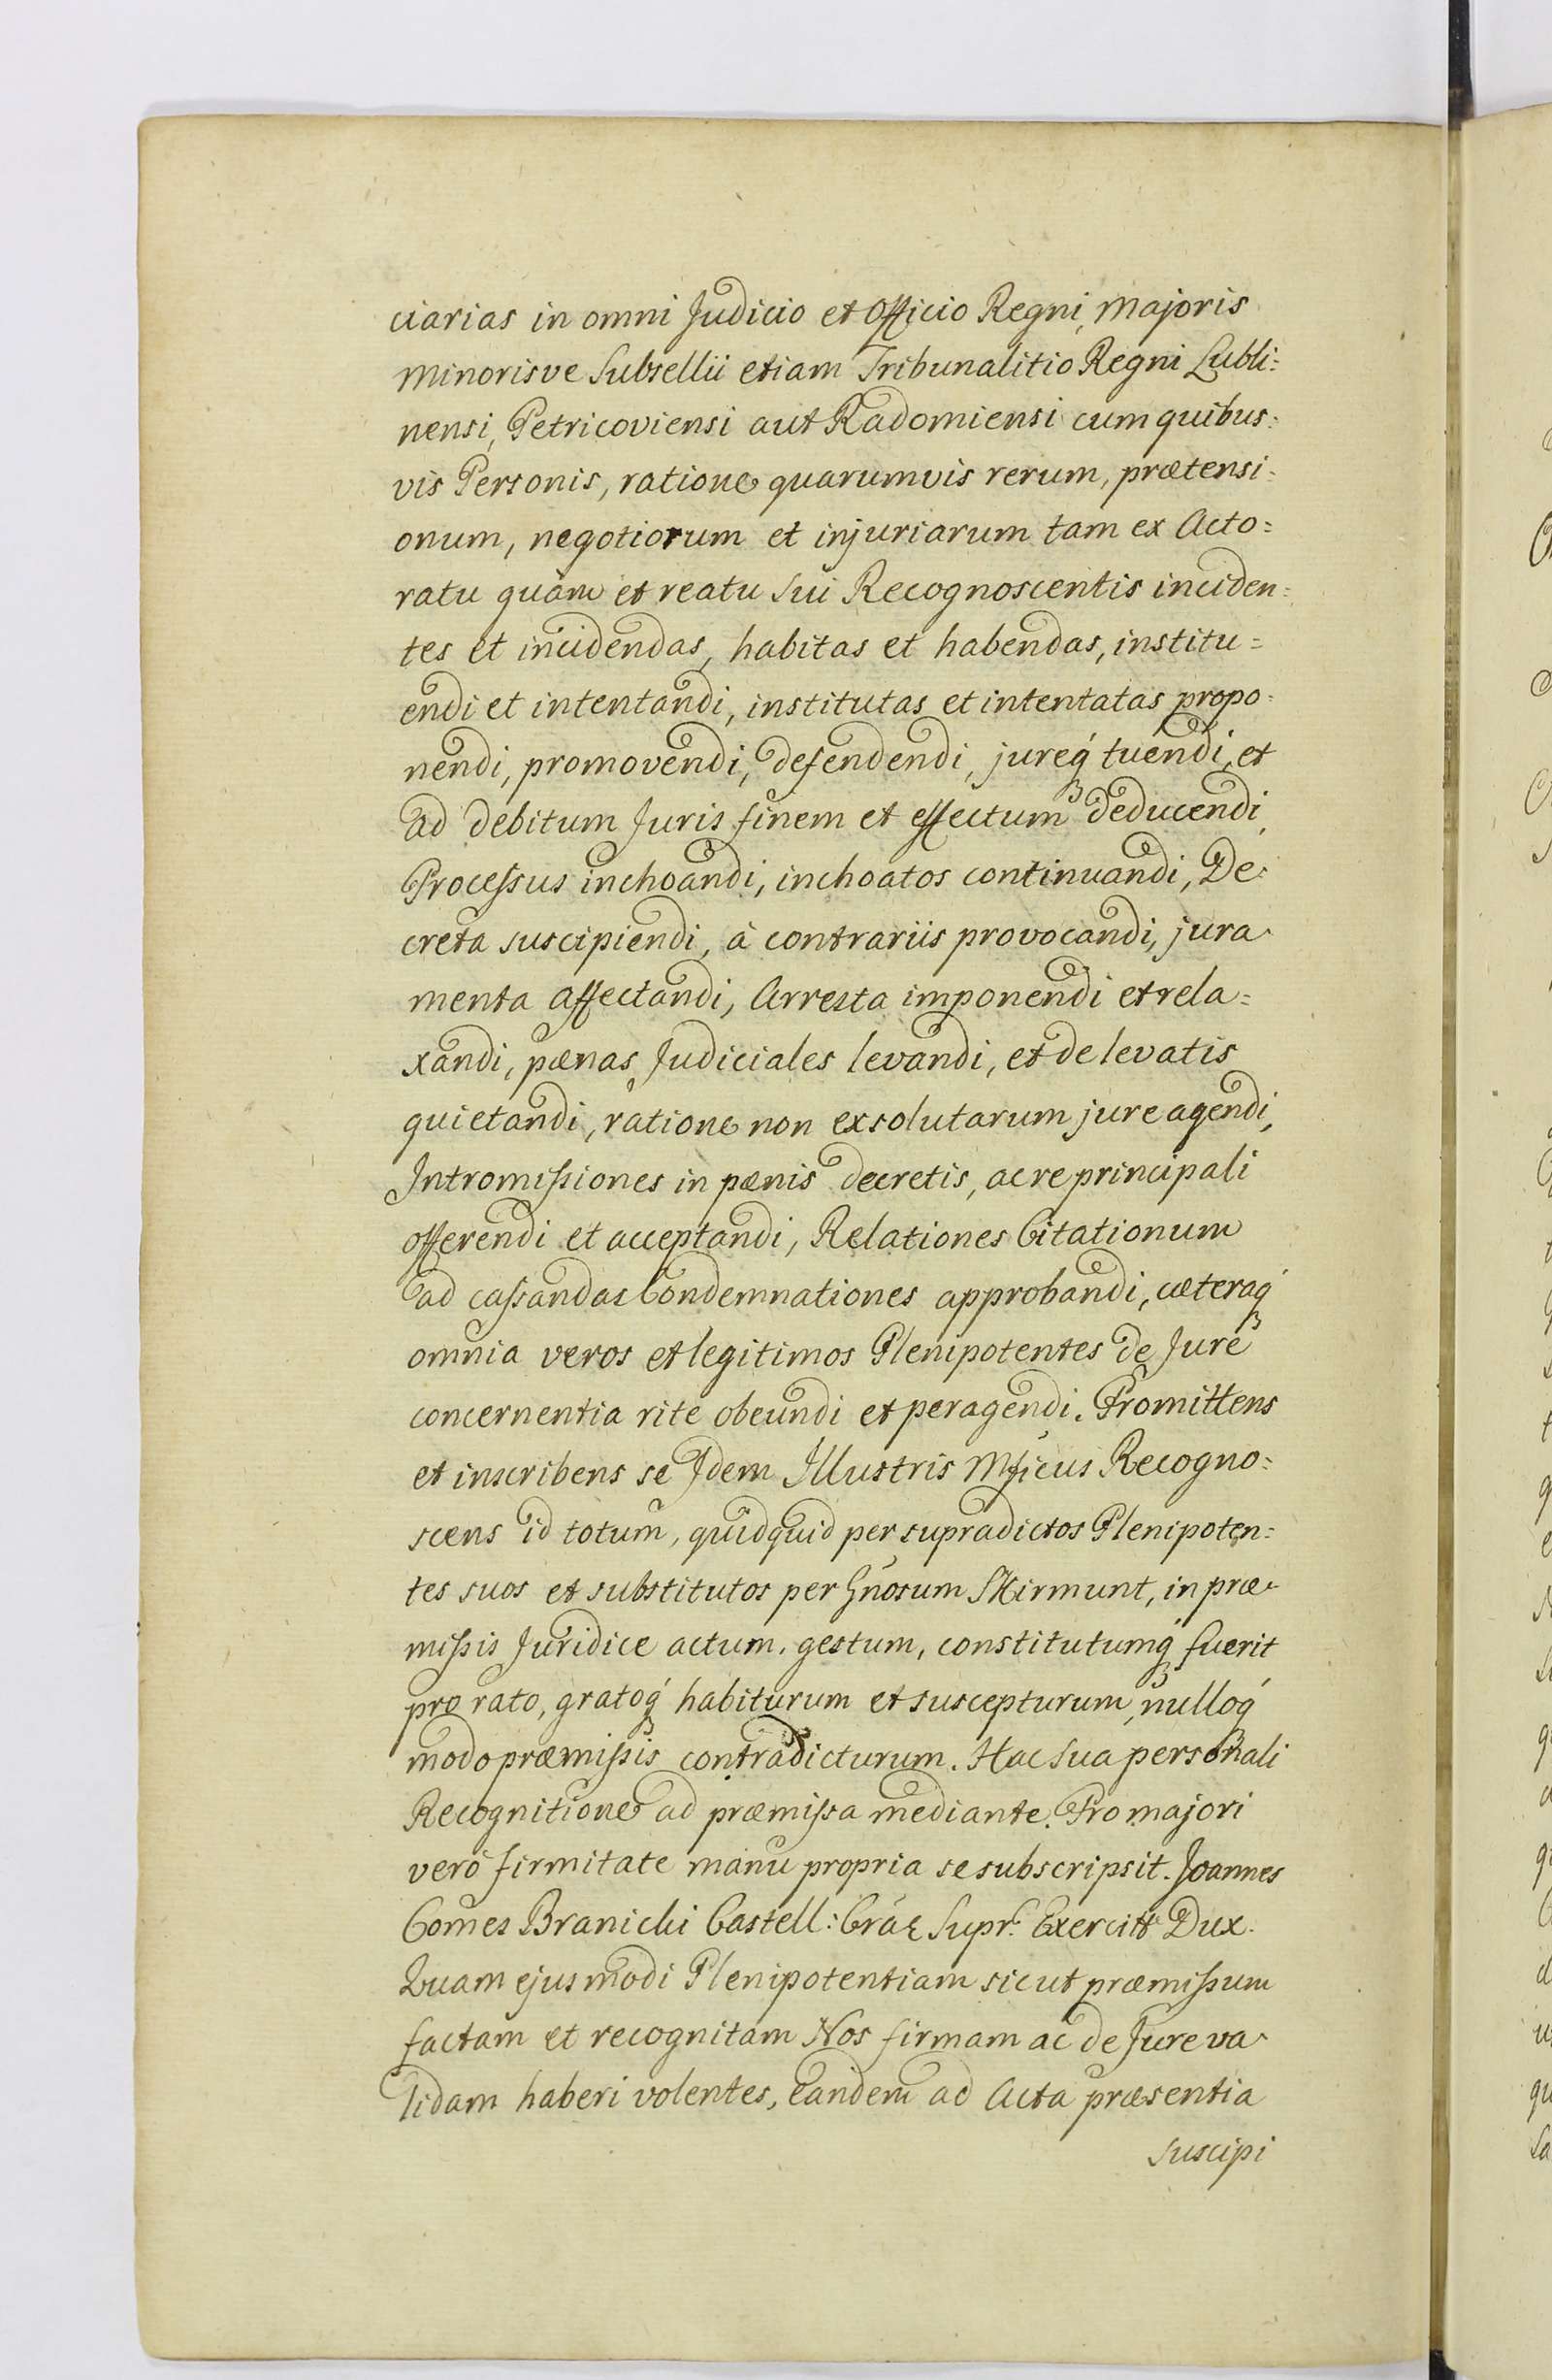 ciarias in omni Judicio et Officio Regni, majoris
minorisve Subsellii etiam Tribunalitio Regni Lubli=
nensi, Petricoviensi aut Radomiensi cum quibus=
vis Personis, ratione quarumvis rerum, prætensi=
onum, negotiorum et injuriarum tam ex Acto=
ratu quàm et reatu sui Recognoscentis inciden=
tes et incidendas, habitas et habendas, institu=
endi et intentandi, institutas et intentatas propo=
nendi, promovendi, defendendi, jureq́ tuendi, et
ad debitum Juris finem et effectum deducendi,
Processus inchoandi, inchoatos continuandi, De=
creta suscipiendi, à contrariis provocandi, jura=
menta affectandi, Arresta imponendi et rela=
xandi, pænas Judiciales levandi, et de levatis
quietandi, ratione non exsolutarum jure agendi,
Intromissiones in pænis decretis, ac re principali
offerendi et acceptandi, Relationes Citationum
ad cassandas Condemnationes approbandi, cæteraq́
omnia veros et legitimos Plenipotentes de Jure
concernentia rite obeundi et peragendi. Promittens
et inscribens se Idem Illustris Mficus Recogno=
scens id totum, quidquid per supradictos Plenipoten=
tes suos et substitutos per Gnosum Skirmunt, in præ=
missis Juridice actum, gestum, constitutumq́ fuerit
pro rato, gratoq́ habiturum et suscepturum, nulloq́
modo præmissis contradicturum. Hac sua personali
Recognitione ad præmissa mediante. Pro majori
verò firmitate manu propria se subscripsit. Joannes
Comes Branicki Castell: Crac Supr. Exercitt Dux.
Quam ejusmodi Plenipotentiam sicut præmissum
factam et recognitam Nos firmam ac de Jure va=
lidam haberi volentes, Eandem ad Acta præsentia
suscipi